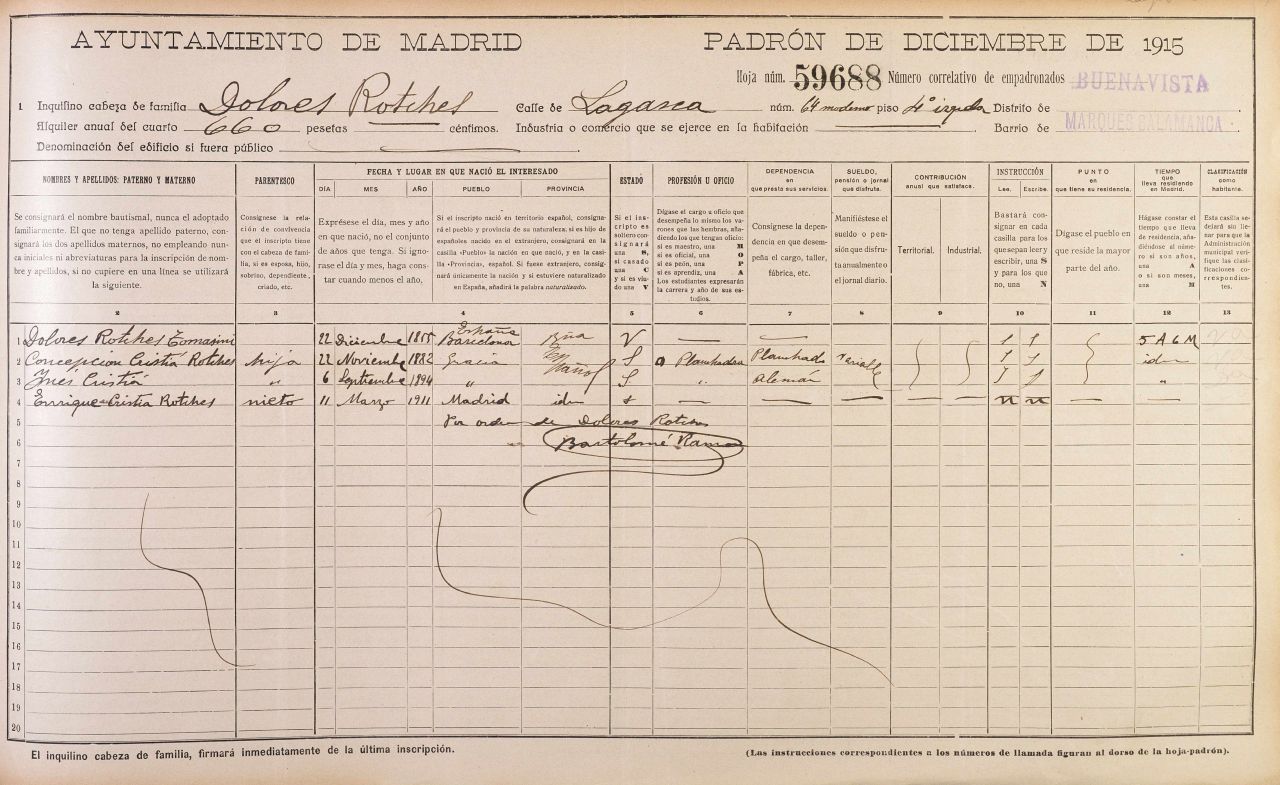 AYUNTAMIENTO DE MADRID
PADRÓN DE DICIEMBRE DE 1915
Hoja núm. 59688 Número correlativo de empadronados
BUENAVISTA
1 Inquilino cabeza de familia Dolores Rotches Calle de Lagasca núm. 64 moderno piso 4º izqda Distrito de
Alquiler anual del cuarto 660 pesetas céntimos. Industria o comercio que se ejerce en la habitación Barrio de MARQUES SALAMANCA
Denominación del edificio si fuera público
NOMBRES Y APELLIDOS: PATERNO Y MATERNO
Se consignará el nombre bautismal, nunca el adoptado
familiarmente. El que no tenga apellido paterno, con-
signará los dos apellidos maternos, no empleando nun-
ca iniciales ni abreviaturas para la inscripción de nom-
bre y apellidos, si no cupiere en una línea se utilizará
la siguiente.
2
PARENTESCO
Consígnese la rela-
ción de convivencia
que el inscripto tiene
con el cabeza de fami-
lia, si es esposa, hijo,
sobrino, dependiente,
criado, etc.
3
FECHA Y LUGAR EN QUE NACIÓ EL INTERESADO
DÍA MES AÑO PUEBLO PROVINCIA
Exprésese el día, mes y año
en que nació, no el conjunto
de años que tenga. Si igno-
rase el día y mes, haga cons-
tar cuando menos el año.
Si el inscripto nació en territorio español, consigna-
rá el pueblo y provincia de su naturaleza; si es hijo de
españoles nacido en el extranjero, consignará en la
casilla «Pueblo» la nación en que nació, y en la casi-
lla «Provincia», español. Si fuese extranjero, consig-
nará únicamente la nación y si estuviere naturalizado
en España, añadirá la palabra naturalizado.
4
ESTADO
Si el ins-
cripto es
soltero con-
signará
una S,
si casado
una C
y si es viu-
do una V
5
PROFESIÓN U OFICIO
Dígase el cargo u oficio que
desempeña lo mismo los va-
rones que las hembras, aña-
diendo los que tengan oficio:
si es maestro, una M
si es oficial, una O
si es peón, una P
si es aprendiz, una A
Los estudiantes expresarán
la carrera y año de sus es-
tudios.
6
DEPENDENCIA
en
que presta sus servicios.
Consígnese la depen-
dencia en que desem-
peña el cargo, taller,
fábrica, etc.
7
SUELDO,
pensión o jornal
que disfruta.
Manifiéstese el
sueldo o pen-
sión que disfru-
ta anualmente o
el jornal diario.
8
CONTRIBUCIÓN
anual que satisface.
Territorial. Industrial.
9
INSTRUCCIÓN
Lee. Escribe.
Bastará con-
signar en cada
casilla para los
que sepan leer y
escribir, una S
y para los que
no, una N
10
PUNTO
en
que tiene su residencia.
Dígase el pueblo en
que reside la mayor
parte del año.
11
TIEMPO
que
lleva residiendo
en Madrid.
Hágase constar el
tiempo que lleva
de residencia, aña-
diéndose al núme-
ro si son años,
una A
o si son meses,
una M
12
CLASIFICACIÓN
como
habitante.
Esta casilla se
dejará sin lle-
nar para que la
Administración
municipal veri-
fique las clasi-
ficaciones co-
rrespondien-
tes.
13
1 Dolores Rotches Tomasini 22 Diciembre 1855 España Barcelona V 5 A 6 M
2 Concepcion Cristiá Rotches hija 22 Noviembre 1882 Gracia S O Planchadora Planchado idm
3 Ynés Cristiá " 6 Septiembre 1894 " S " Alemán "
4 Enrique Cristia Rotches nieto 11 Marzo 1911 Madrid idm s n n
5 Por orden de Dolores Rotches
6 Bartolomé Ramos
7
8
9
10
11
12
13
14
15
16
17
18
19
20
El inquilino cabeza de familia, firmará inmediatamente de la última inscripción.
(Las instrucciones correspondientes a los números de llamada figuran al dorso de la hoja-padrón).